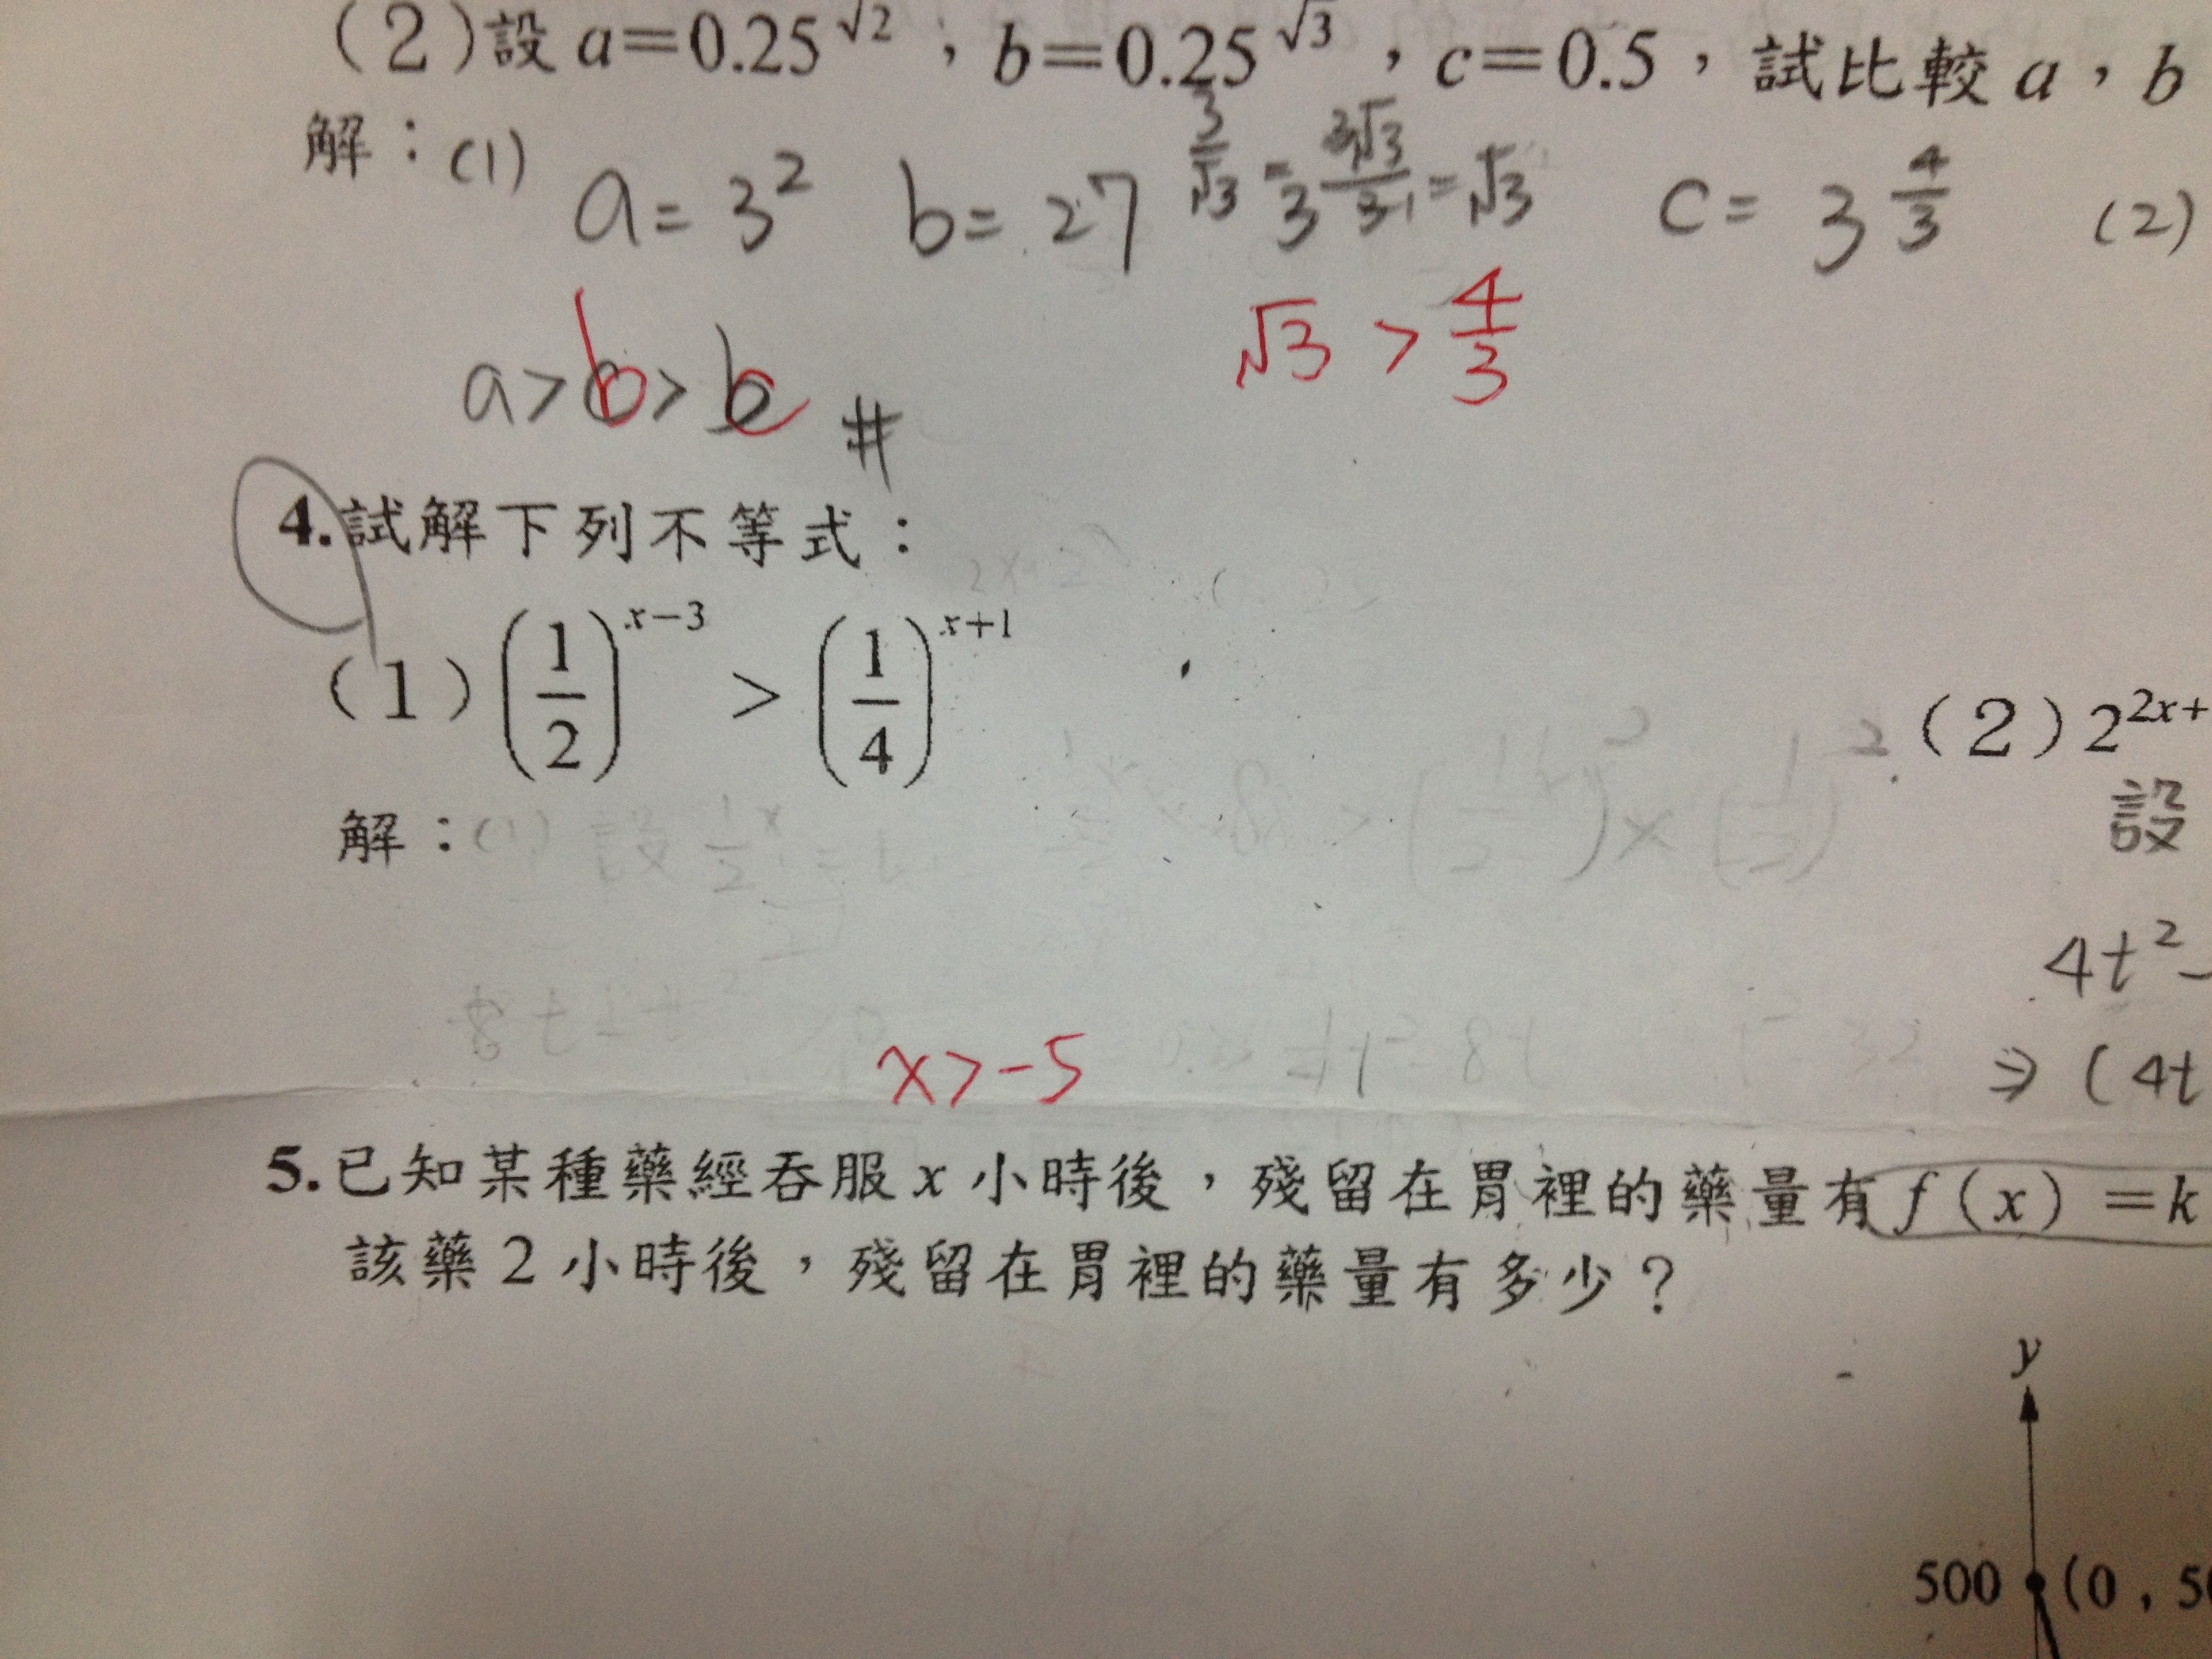 (2)設 a=0.25^√2,b=0.25^√3,c=0.5,試比較 a,b
解:(1) a=3² b=27 c=3^(4/3) (2)
√3>4/3
a>b>c #
4.試解下列不等式:
(1)(1/2)^(x-3) > (1/4)^(x+1) (2)2^(2x+
解:(1) 設 設
4t²-
x>-5 ⇒(4t
5.已知某種藥經吞服 x 小時後,殘留在胃裡的藥量有 f(x)=k
該藥 2 小時後,殘留在胃裡的藥量有多少?
y
500 (0,50